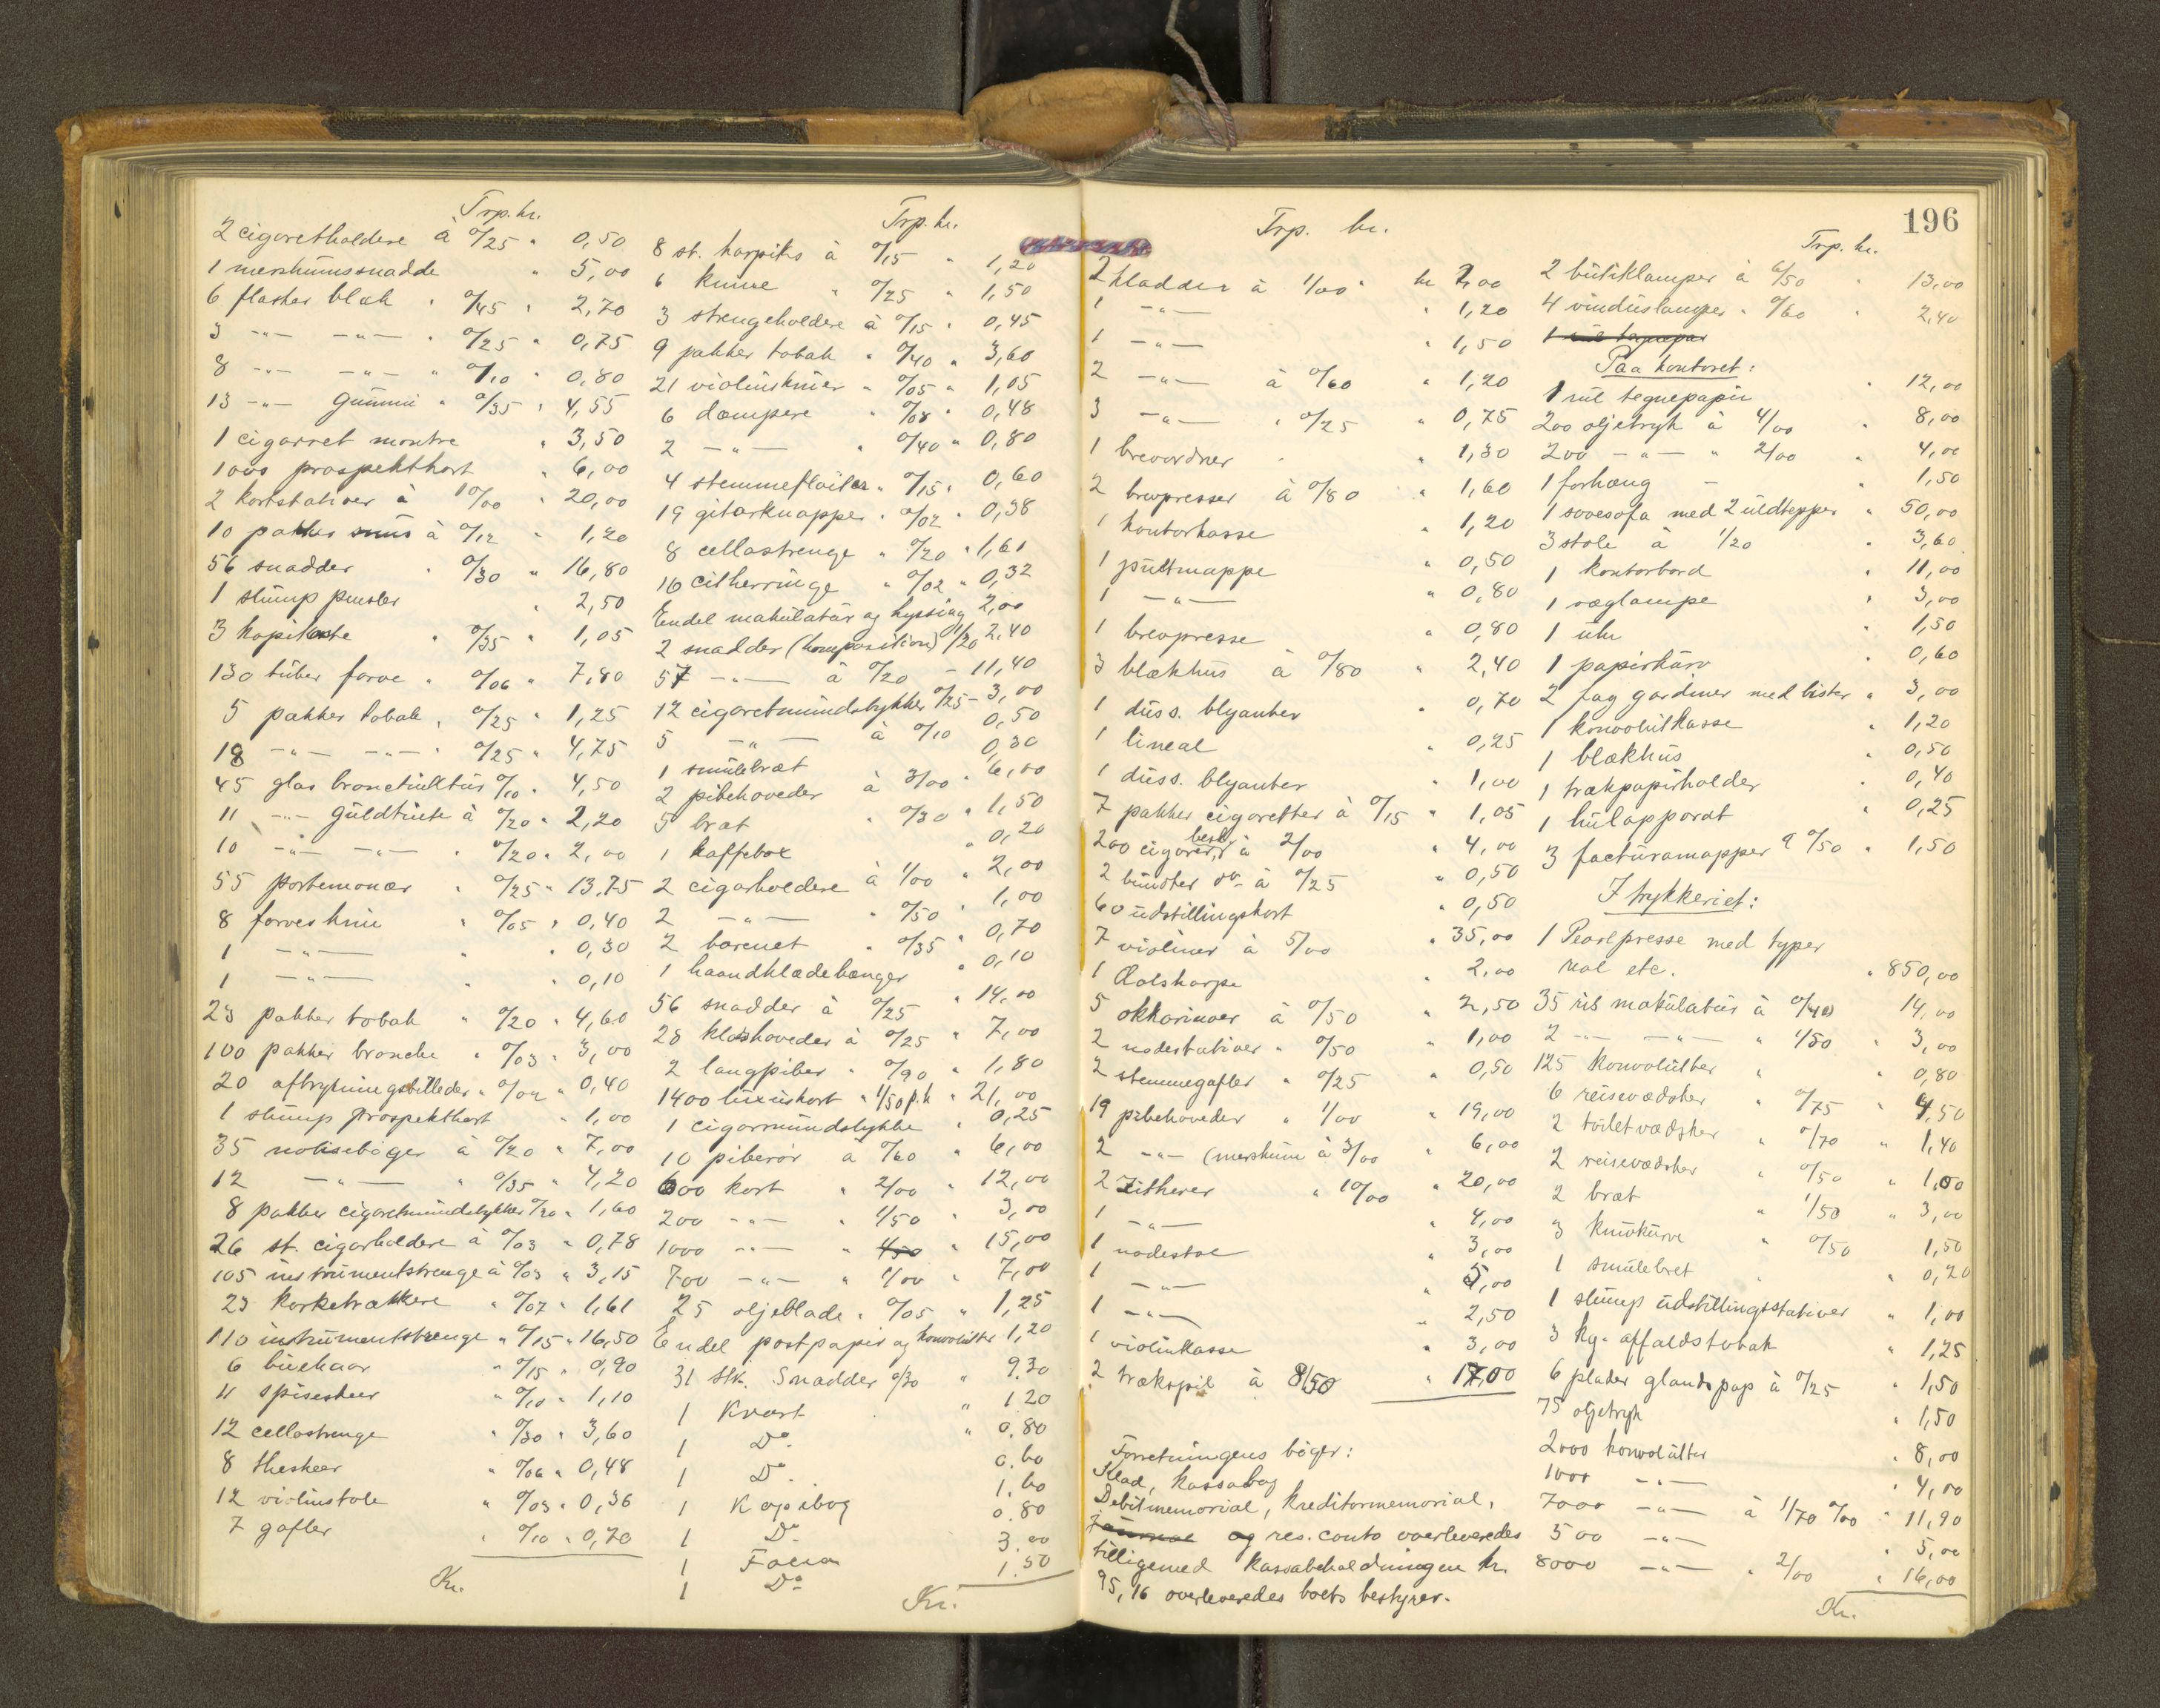 Trp. kr.
2 cigaretholdere à 0/25 " 0,50
1 merskumssnadde " 5,00
6 flasker blæk " 0/45 " 2,70
3 -"- -"- " 0/25 " 0,75
8 -"- -"- " 0/10 " 0,80
13 -"- gummi " 0/35 " 4,55
1 cigarret montre " 3,50
1000 prospektkort " 6,00
2 kortstativer à 10/00 " 20,00
10 pakker snus à 0/12 " 1,20
56 snadder " 0/30 " 16,80
1 slump pensler " 2,50
3 kopikoste " 0/35 " 1,05
130 tuber farve " 0/06 " 7,80
5 pakker tobak " 0/25 " 1,25
18 -"- -"- " 0/25 " 4,75
45 glas broncetinktur 0/10 " 4,50
11 -"- guldtinte à 0/20 " 2,20
10 -"- -"- " 0/20 " 2,00
55 portemonær " 0/25 " 13,75
8 farveskrin " 0/05 " 0,40
1 -"- " " 0,30
1 -"- " " 0,10
23 pakker tobak " 0/20 " 4,60
100 pakker bronche " 0/03 " 3,00
20 aftrykningsbilleder " 0/02 " 0,40
1 slump prospektkort " 1,00
35 notisebøger à 0/20 " 7,00
12 -"- " 0/35 " 4,20
8 pakker cigaretmundstykker 0/20 " 1,60
26 st. cigarholdere à 0/03 " 0,78
105 instrumentstrenge à 0/03 " 3,15
23 korketrækkere " 0/07 " 1,61
110 instrumentstrenge " 0/15 " 16,50
6 buehaar " 0/15 " 0,90
11 spiseskeer " 0/10 " 1,10
12 cellostrenge " 0/30 " 3,60
8 theskeer " 0/06 " 0,48
12 violinstole " 0/03 " 0,36
7 gafler " 0/10 " 0,70
Kr.
Trp. kr.
8 st. harpiks à 0/15 " 1,20
6 knive " 0/25 " 1,50
3 strengeholdere à 0/15 " 0,45
9 pakker tobak " 0/40 " 3,60
21 violinskruer " 0/05 " 1,05
6 dæmpere " 0/08 " 0,48
2 -"- " 0/40 " 0,80
4 stemmefløiter " 0/15 " 0,60
19 gitarknapper " 0/02 " 0,38
8 cellostrenge " 0/20 " 1,61
16 citherringe " 0/02 " 0,32
Endel makulatur og hyssing 2,00
2 snadder (komposition) 1/20 2,40
57 -"- à 0/20 - 11,40
12 cigaretmundstykker 0/25 - 3,00
5 -"- à 0/10 0,50
1 smulebræt 0,30
2 pibehoveder à 3/00 " 6,00
5 bræt " 0/30 " 1,50
1 kaffebox " 0,20
2 cigarholdere à 1/00 " 2,00
2 -"- " 0/50 " 1,00
2 barenet " 0/35 " 0,70
1 haandklædehænger " 0,10
56 snadder à 0/25 " 14,00
28 klokhoveder à 0/25 " 7,00
2 langpiber " 0/90 " 1,80
1400 luxuskort " 1/50 p.h. " 21,00
1 cigarmundstykke " 0,25
10 piberør a 0/60 " 6,00
600 kort " 2/00 " 12,00
200 -"- " 1/50 " 3,00
1000 -"- " 1/50 " 15,00
700 -"- " 1/00 " 7,00
25 oljeblade " 0/05 " 1,25
Endel postpapir og konvolutter 1,20
31 stk. Snadder 0/30 " 9.30
1 Kvart " 1.20
1 Do. " 0.80
1 Do. 0.60
1 Kopibog 1.60
1 Do. 0.80
1 Folian 3.00
1 Do. 1.50
Kr.
Trp. kr.
2 kladder à 1/00 " kr 2,00
1 -"- " 1,20
1 -"- " 1,50
2 -"- à 0/60 " 1,20
3 -"- " 0/25 " 0,75
1 brevordner " 1,30
2 brevpresser à 0/80 " 1,60
1 kontorkasse " 1,20
1 pultmappe " 0,50
1 -"- " 0,80
1 brevpresse " 0,80
3 blækhus à 0/80 " 2,40
1 duss. blyanter " 0,70
1 lineal " 0,25
1 duss. blyanter " 1,00
7 pakker cigaretter à 0/15 " 1,05
200 cigarer, besk. à 2/00 " 4,00
2 bundter do. à 0/25 " 0,50
60 udstillingskort " 0,50
7 violiner à 5/00 " 35,00
1 Æolsharpe " 2,00
5 okkarinaer à 0/50 " 2,50
2 nodestativer " 0/50 " 1,00
2 stemmegafler " 0/25 " 0,50
19 pibehoveder " 1/00 " 19,00
2 -"- (merskum à 3/00 " 6,00
2 Zitherer " 10/00 " 20,00
1 -"- " 4,00
1 nodestol " 3,00
1 -"- " 5,00
1 -"- " 2,50
1 violinkasse " 3,00
2 trækspil à 8/50 " 17,00
Forretningens bøger:
Klad, kassabog
Debitmemorial, kreditormemorial,
Journal og res. conto overleveredes
tilligemed kassabeholdningen kr.
95,16 overleveredes boets bestyrer.
196
Trp. kr.
2 butiklamper à 6/50 " 13,00
4 vinduslamper " 0/60 " 2,40
1 rul tegnepapir
Paa kontoret:
1 rul tegnepapir " 12,00
200 oljetryk à 4/00 " 8,00
200 -"- " 2/00 " 4,00
1 forhæng - " 1,50
1 sovesofa med 2 uldtepper " 50,00
3 stole à 1/20 " 3,60
1 kontorbord " 11,00
1 væglampe " 3,00
1 uhr " 1,50
1 papirkurv " 0,60
2 fag gardiner med lister " 3,00
1 konvolutkasse " 1,20
1 blækhus " 0,50
1 trækpapirholder " 0,40
1 hulapparat " 0,25
3 facturamapper à 0/50 " 1,50
I trykkeriet:
1 Pearlpresse med typer
real etc. " 850,00
35 ris makulatur à 0/40 14,00
2 -"- -"- " 1/50 " 3,00
125 konvolutter " " 0,80
6 reisevædsker " 0/75 " 4,50
2 toiletvædsker " 0/70 " 1,40
2 reisevædsker " 0/50 " 1,00
2 bræt " 1/50 " 3,00
3 knivkurve " 0/50 1,50
1 smulebret " 0,20
1 slump udstillingsstativer " 1,00
3 kg. affaldstobak " 1,25
6 plader glandspap à 0/25 " 1,50
75 oljetryk " 1,50
2000 konvolutter " 8,00
1000 -"- " 4,00
7000 -"- à 1/70 0/00 " 11,90
500 -"- " 5,00
8000 -"- " 2/00 " 16,00
Kr.